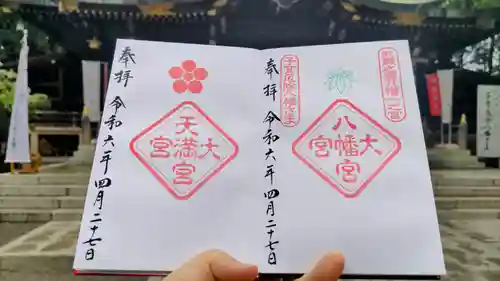 奉拝
大宮
八幡宮
令和六年四月二十七日
奉拝
大宮
天満宮
令和六年四月二十七日